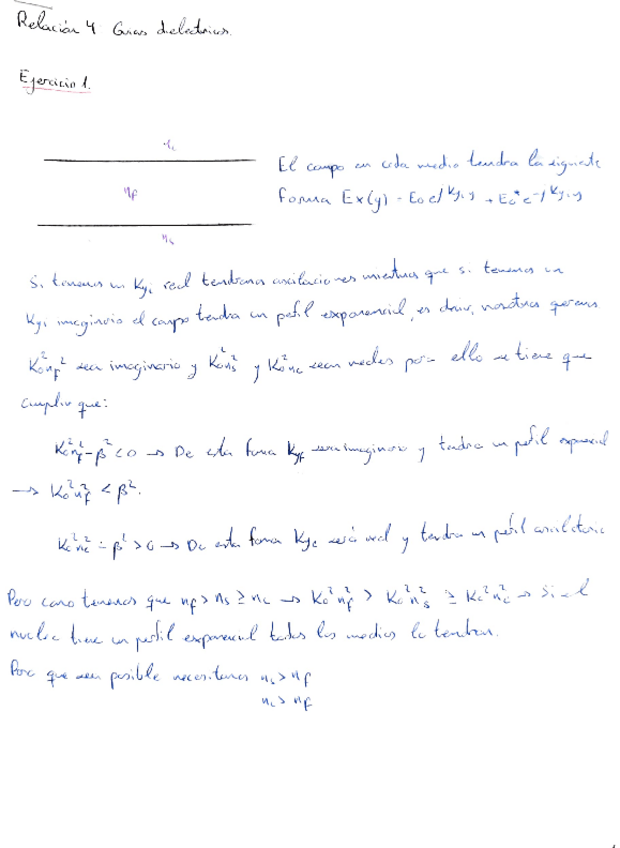 Relación 4 Guías dieléctricas.
Ejercicio 1.
n_c
n_f
n_s
El campo en cada medio tendra la siguiente
forma Ex(y) = E₀ e^{j K_{yi} y} + E₀⁺ e^{-j K_{yi} y}
Si tenemos un K_{yi} real tendremos oscilaciones mientras que si tenemos un
K_{yi} imaginario el campo tendra un perfil exponencial, es decir, nosotros queremos
K₀²n_f² sea imaginario y K₀²n_s² y K₀²n_c sean reales para ello se tiene que
cumplir que:
K₀²n_f² - β² < 0 → De esta forma K_{yf} sera imaginario y tendra un perfil exponencial
→ K₀²n_f² < β².
K₀²n_c² - β² > 0 → De esta forma K_{yc} será real y tendra un perfil oscilatorio
Pero como tenemos que n_f > n_s ≥ n_c → K₀²n_f² > K₀²n_s² ≥ K₀²n_c² → Si el
nucleo tiene un perfil exponencial todos los medios lo tendran.
Para que sea posible necesitamos n_s > n_f
n_c > n_f